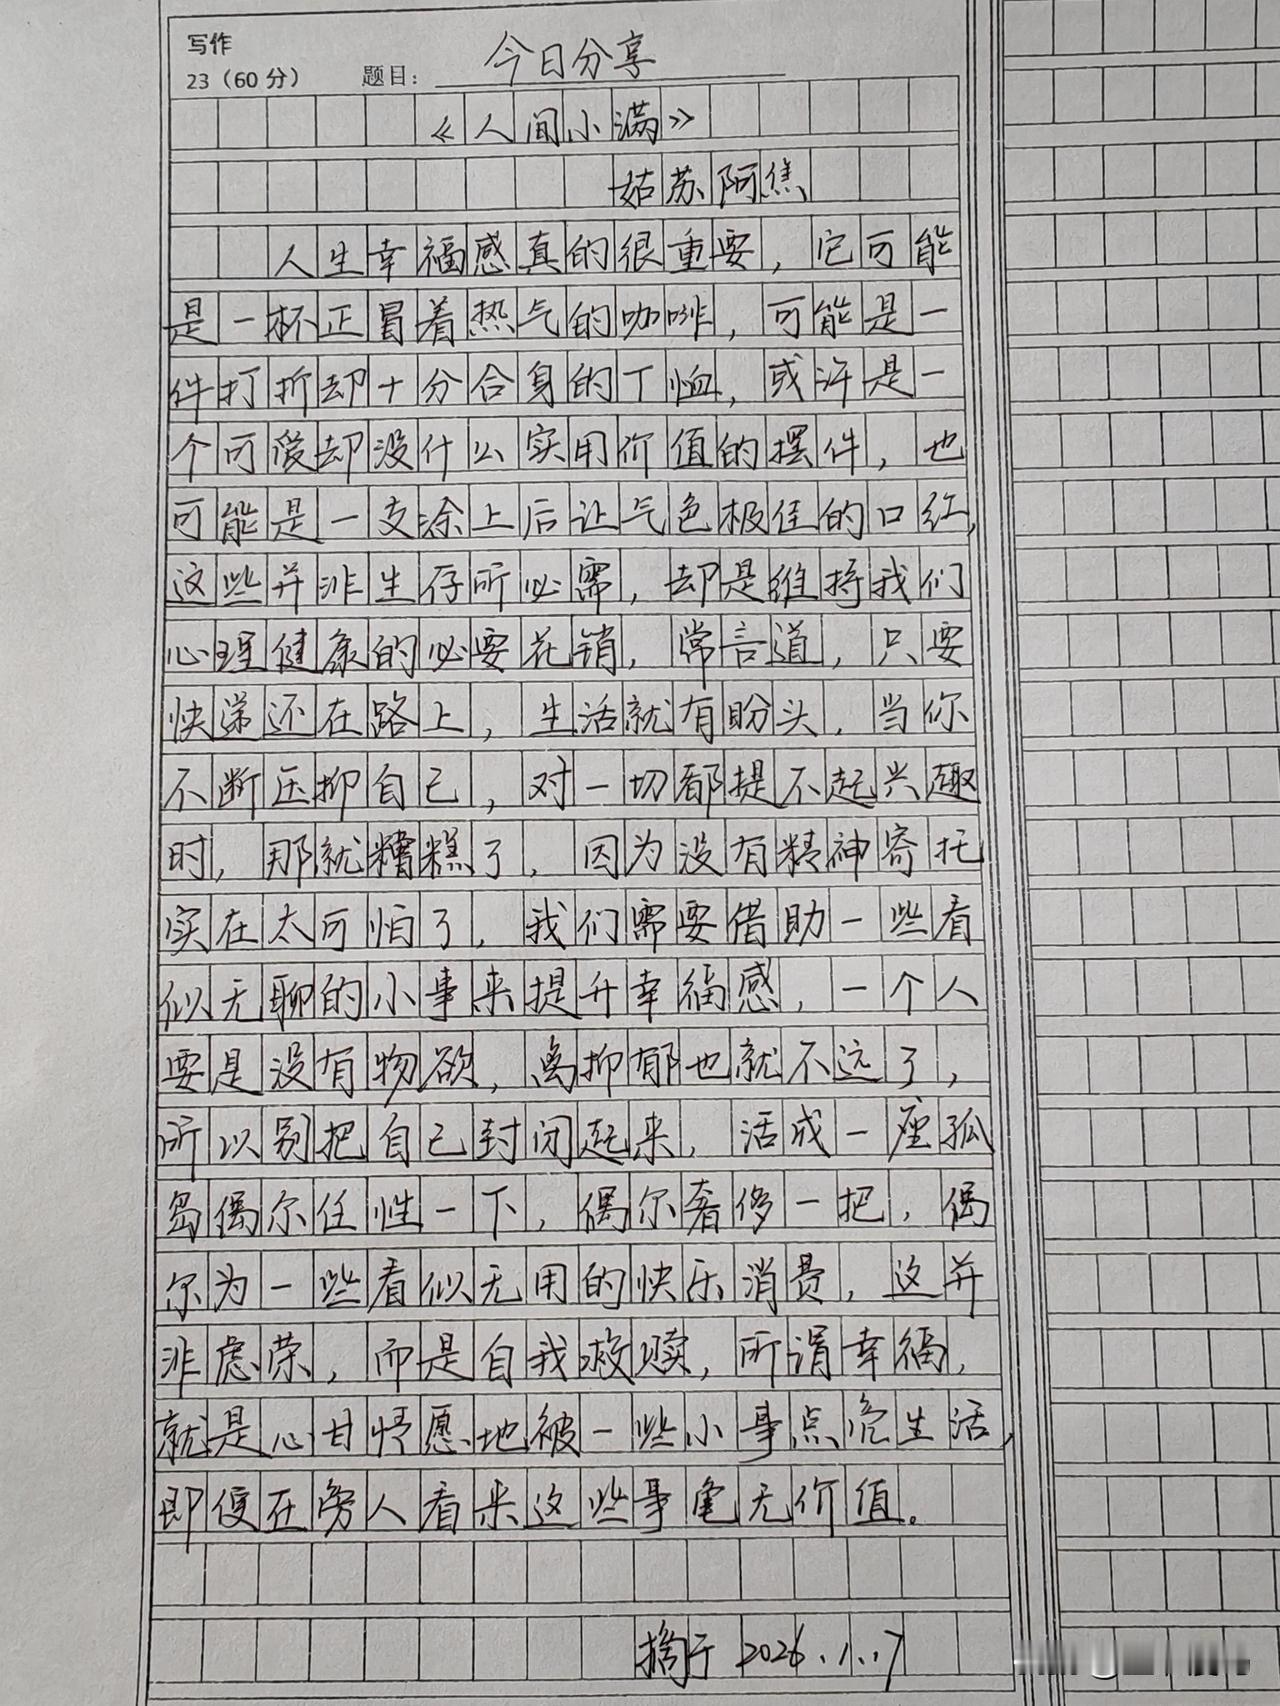 写作
23（60分） 题目：今日分享
《人间小满》
姑苏阿焦
人生幸福感真的很重要，它可能
是一杯正冒着热气的咖啡，可能是一
件打折却十分合身的T恤，或许是一
个可爱却没什么实用价值的摆件，也
可能是一支涂上后让气色极佳的口红，
这些并非生存所必需，却是维持我们
心理健康的必要花销，常言道，只要
快递还在路上，生活就有盼头，当你
不断压抑自己，对一切都提不起兴趣
时，那就糟糕了，因为没有精神寄托
实在太可怕了，我们需要借助一些看
似无聊的小事来提升幸福感，一个人
要是没有物欲，离抑郁也就不远了，
所以别把自己封闭起来，活成一座孤
岛偶尔任性一下，偶尔奢侈一把，偶
尔为一些看似无用的快乐消费，这并
非虚荣，而是自我救赎，所谓幸福，
就是心甘情愿地被一些小事点亮生活，
即便在旁人看来这些事毫无价值。
摘于 2026.1.17